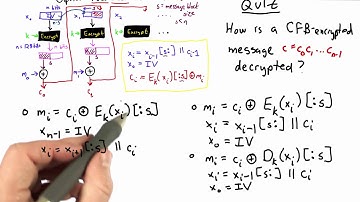 Quiz
How is a CFB-encrypted
message c=c₀c₁...cₙ₋₁
decrypted?
s = message block
size
s≤n
n bits
n bits
k Encrypt
k Encrypt
xᵢ = xᵢ₋₁[s:] || cᵢ₋₁
x₀ = IV
cᵢ = Eₖ(xᵢ)[:s] ⊕ mᵢ
o mᵢ = cᵢ ⊕ Eₖ(xᵢ)[:s]
xₙ₋₁ = IV
xᵢ = xᵢ₊₁[:s] || cᵢ
o mᵢ = cᵢ ⊕ Eₖ(xᵢ)[:s]
xᵢ = xᵢ₋₁[s:] || cᵢ
x₀ = IV
o mᵢ = cᵢ ⊕ Dₖ(xᵢ)[:s]
xᵢ = xᵢ₋₁[s:] || cᵢ
x₀ = IV